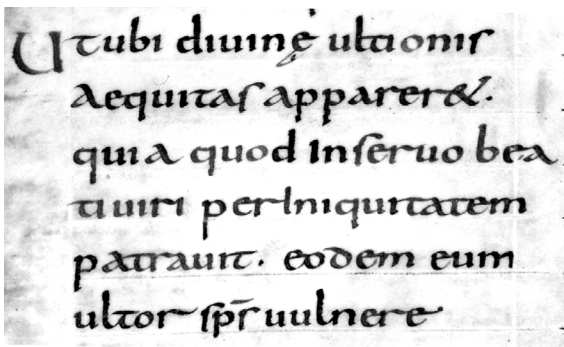 Ut ubi diuinę ultionis
aequitas apparer&.
quia quod Inseruo bea
ti uiri perIniquitatem
patrauit. eodem eum
ultor sp̅s uulnere